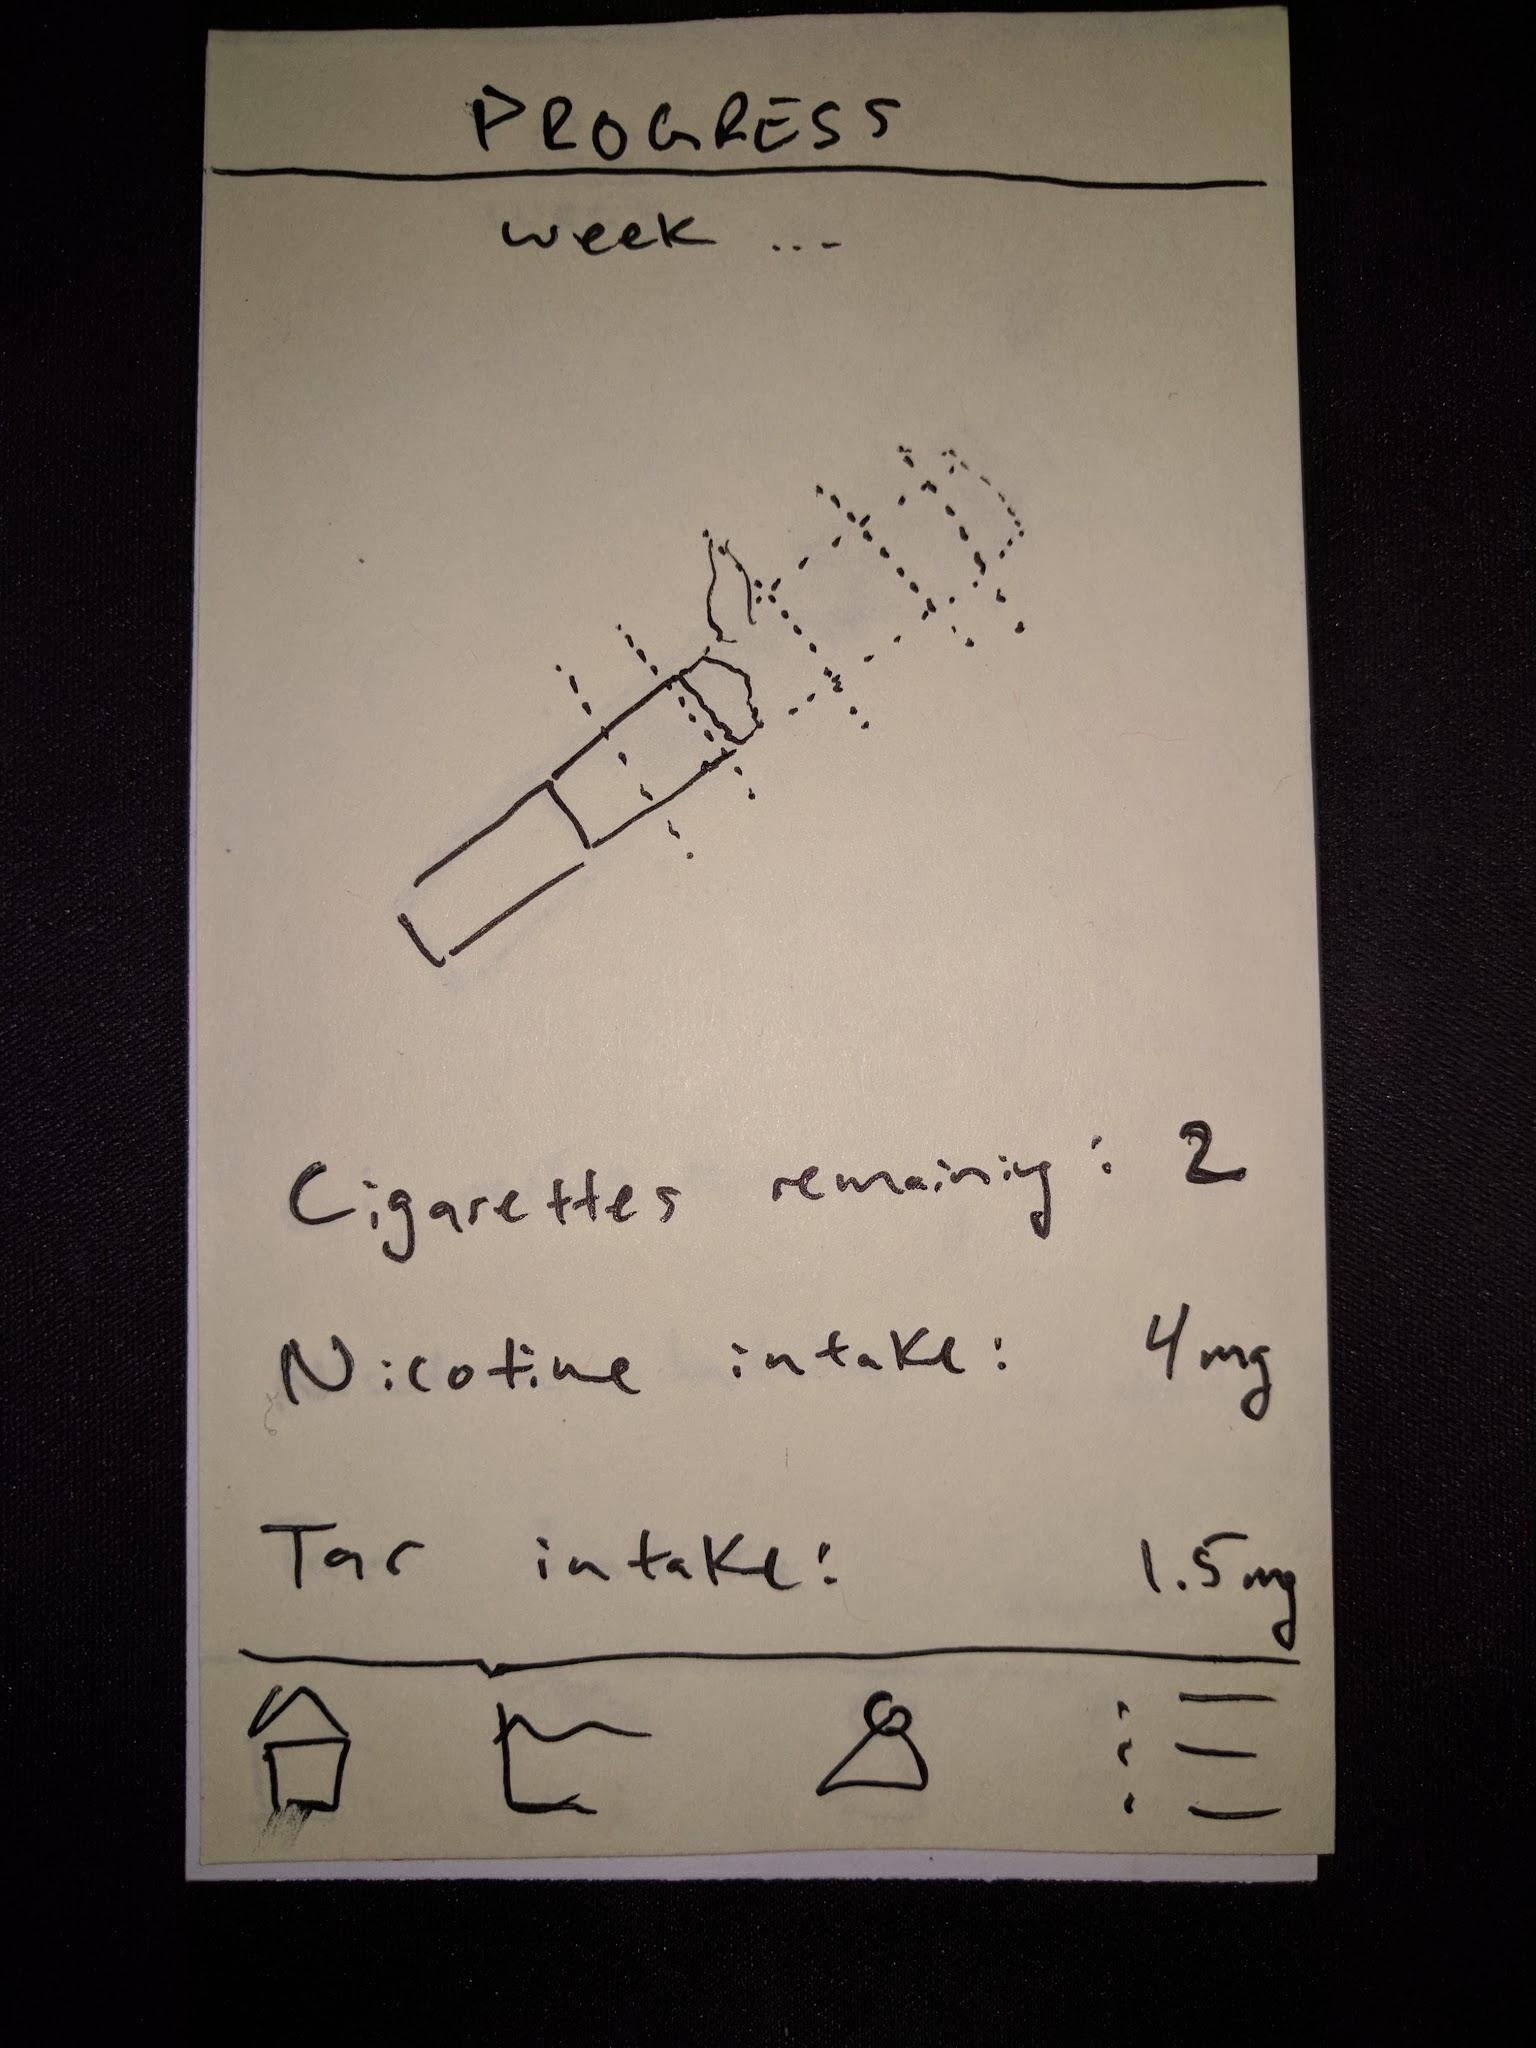 PROGRESS
week ...
Cigarettes remaining: 2
Nicotine intake: 4mg
Tar intake: 1.5mg